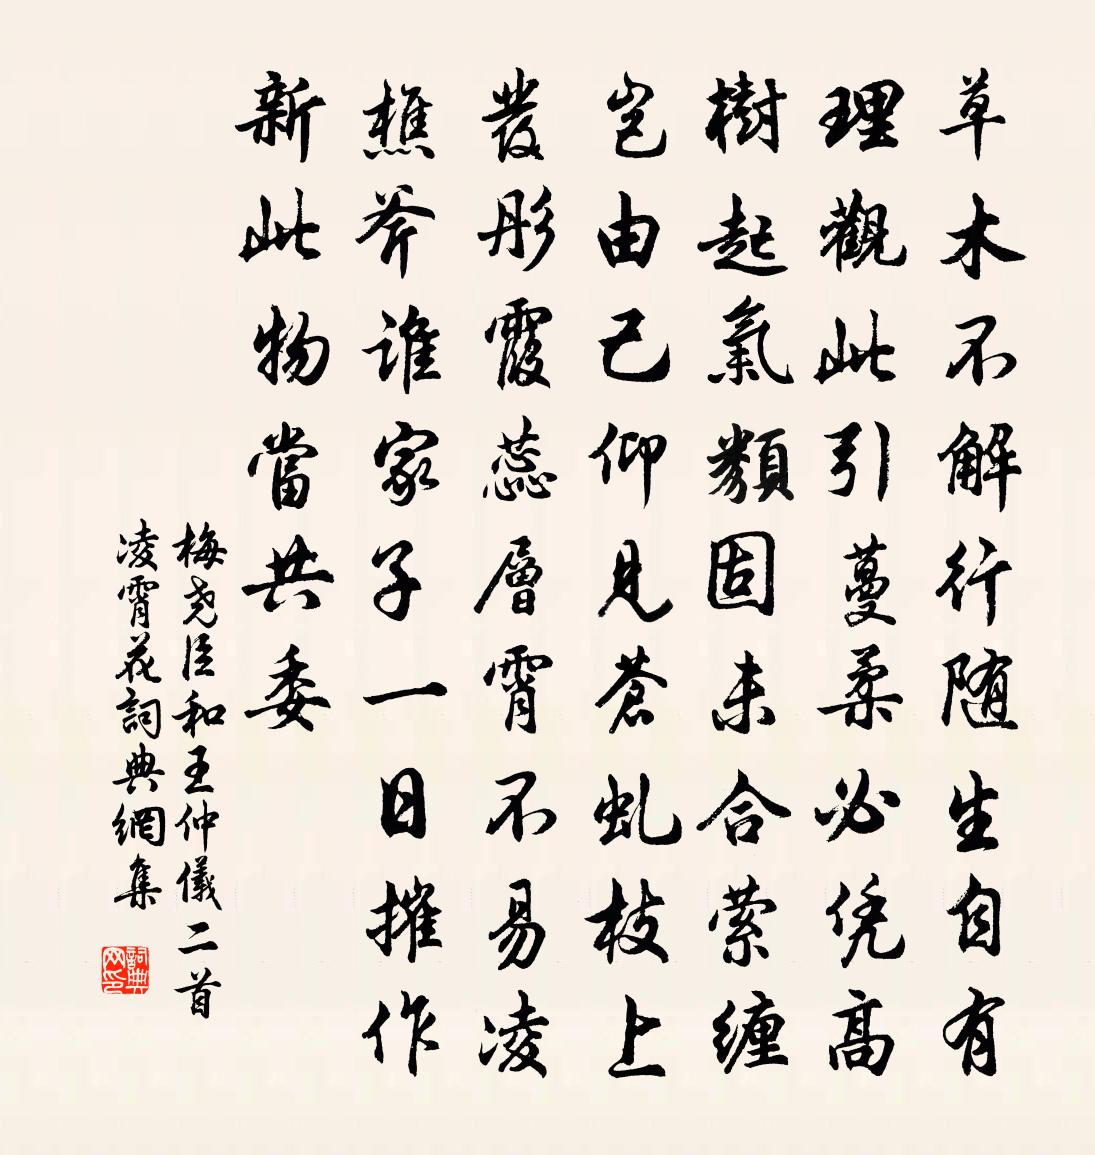 草木不解行随生自有
理觀此引蔓柔必凭高
樹起氣類固未合縈缠
岂由己仰見蒼虬枝上
發彤霞蕊層霄不易凌
樵斧谁家子一日摧作
新此物當共委
梅尧臣和王仲儀二首
凌霄花詞典網集
詞典
网印